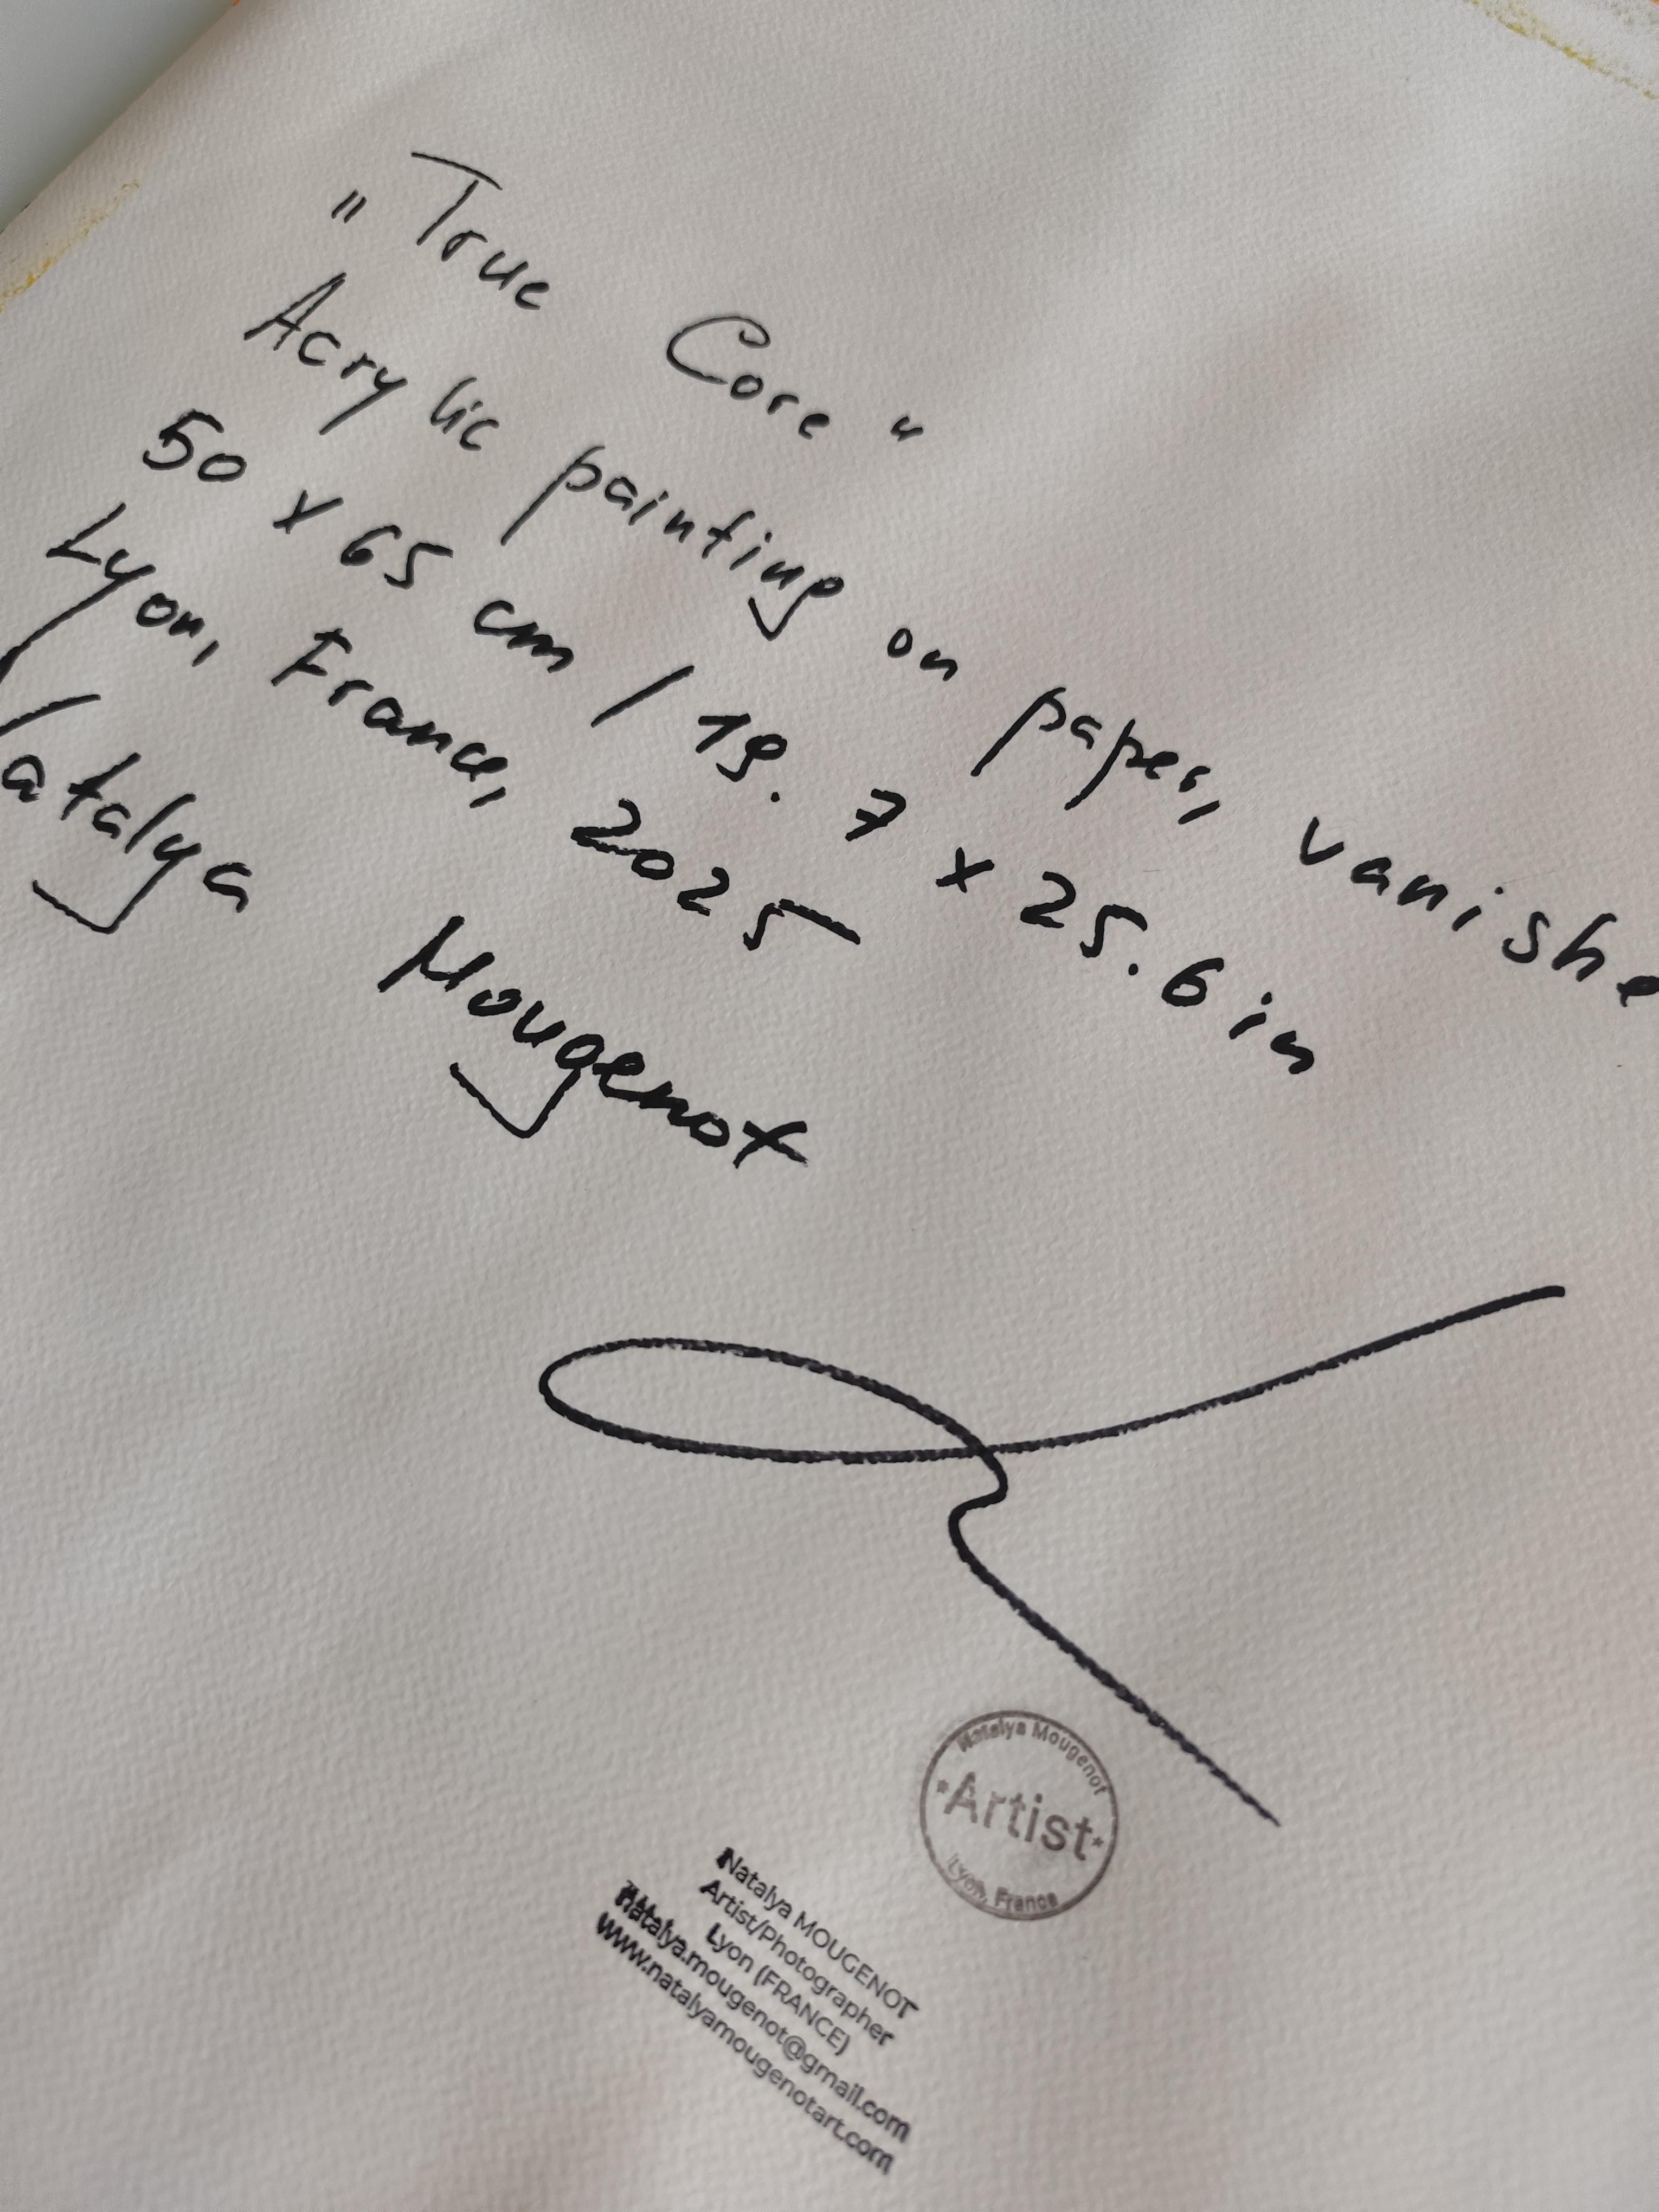 "True Core"
Acrylic painting on paper, vanishe
50 x 65 cm / 19.7 x 25.6 in
Lyon, France, 2025
Natalya Mougenot
Natalya Mougenot
*Artist*
Lyon, France
Natalya MOUGENOT
Artist/Photographer
Lyon (FRANCE)
natalya.mougenot@gmail.com
www.natalyamougenotart.com